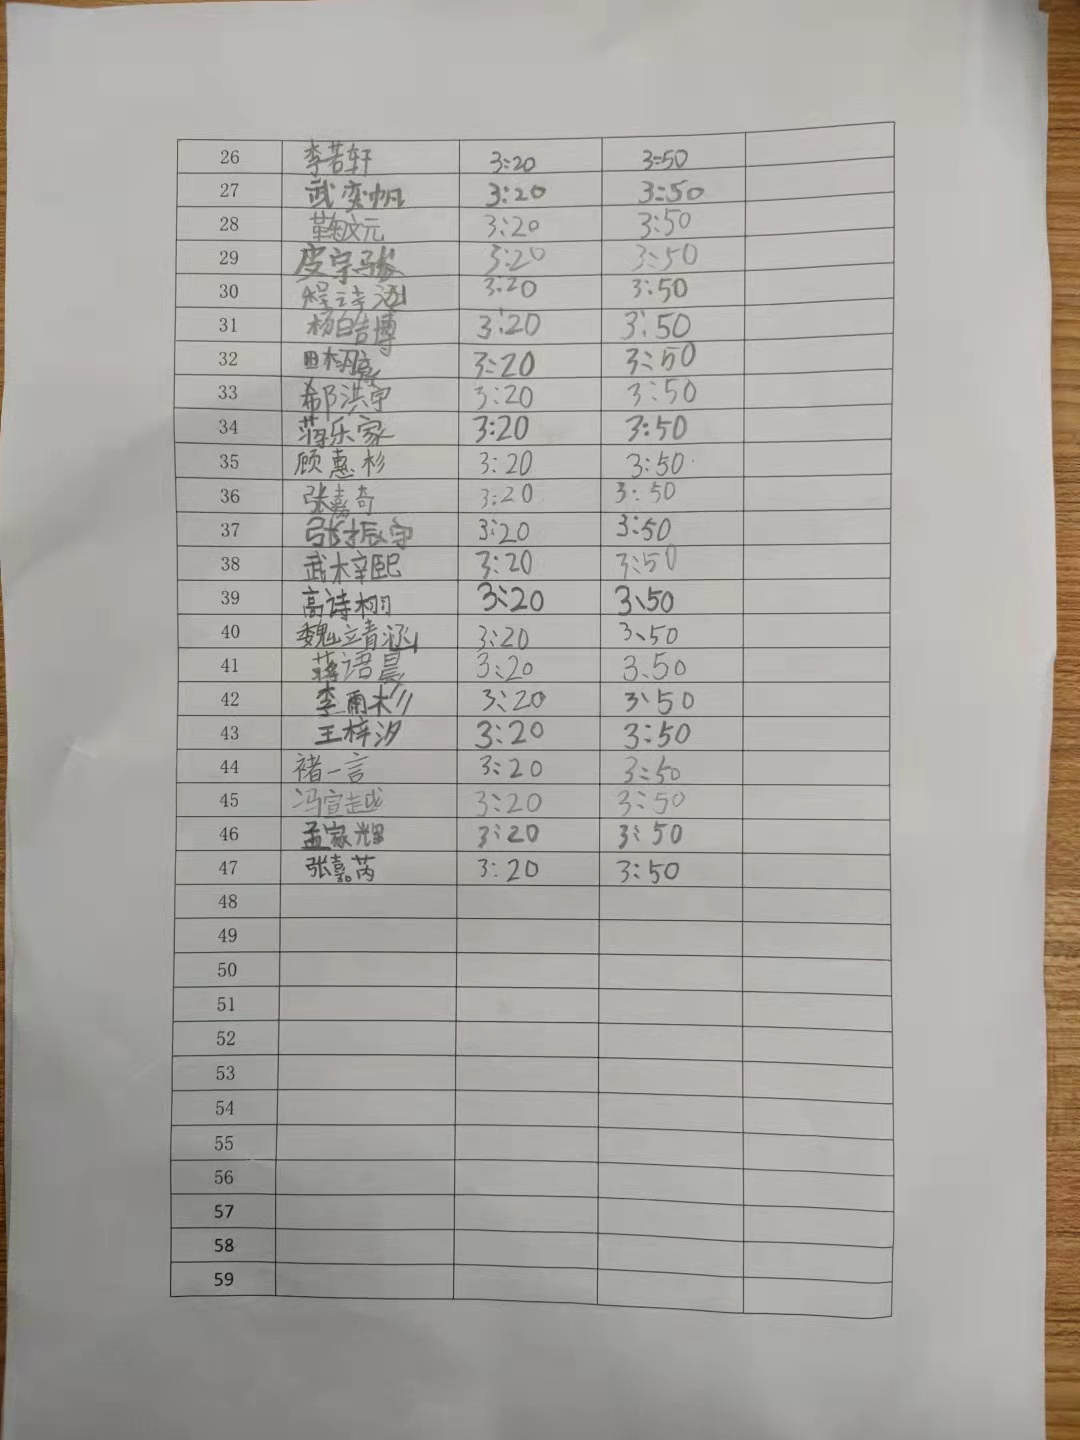 26 李若轩 3:20 3:50
27 武奕帆 3:20 3:50
28 鞠文元 3:20 3:50
29 皮宇骏 3:20 3:50
30 程诗涵 3:20 3:50
31 杨皓博 3:20 3:50
32 3:20 3:50
33 郗洪宇 3:20 3:50
34 蒋乐家 3:20 3:50
35 顾惠杉 3:20 3:50
36 张嘉奇 3:20 3:50
37 张振宇 3:20 3:50
38 武梓熙 3:20 3:50
39 高诗栩 3:20 3、50
40 魏靖涵 3:20 3、50
41 蒋语晨 3:20 3.50
42 李雨彬 3:20 3、50
43 王梓汐 3:20 3:50
44 褚一言 3:20 3:50
45 冯宣越 3:20 3:50
46 孟家辉 3:20 3:50
47 张嘉芮 3:20 3:50
48
49
50
51
52
53
54
55
56
57
58
59